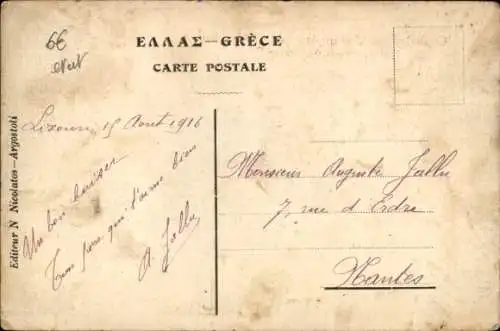 ΕΛΛΑΣ—GRÈCE
CARTE POSTALE
6€
Editeur N Nicolatos—Argostoli
Lixouri, 15 Aout 1916
Un bon baiser
Ton père qui t'aime bien
A. Jallu
Monsieur Auguste Jallu
7, rue d'Erdre
Nantes